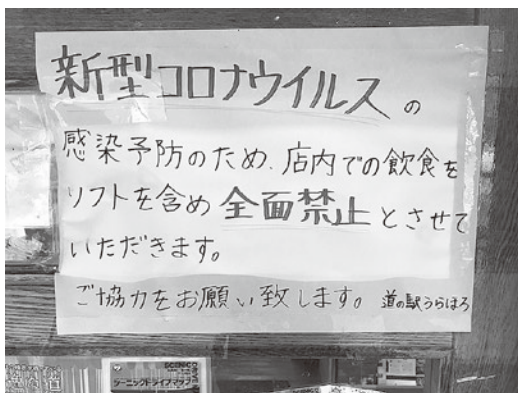 新型コロナウイルスの
感染予防のため、店内での飲食を
ソフトを含め全面禁止とさせて
いただきます。
ご協力をお願い致します。 道の駅うらほろ
シーニックドライブマップ